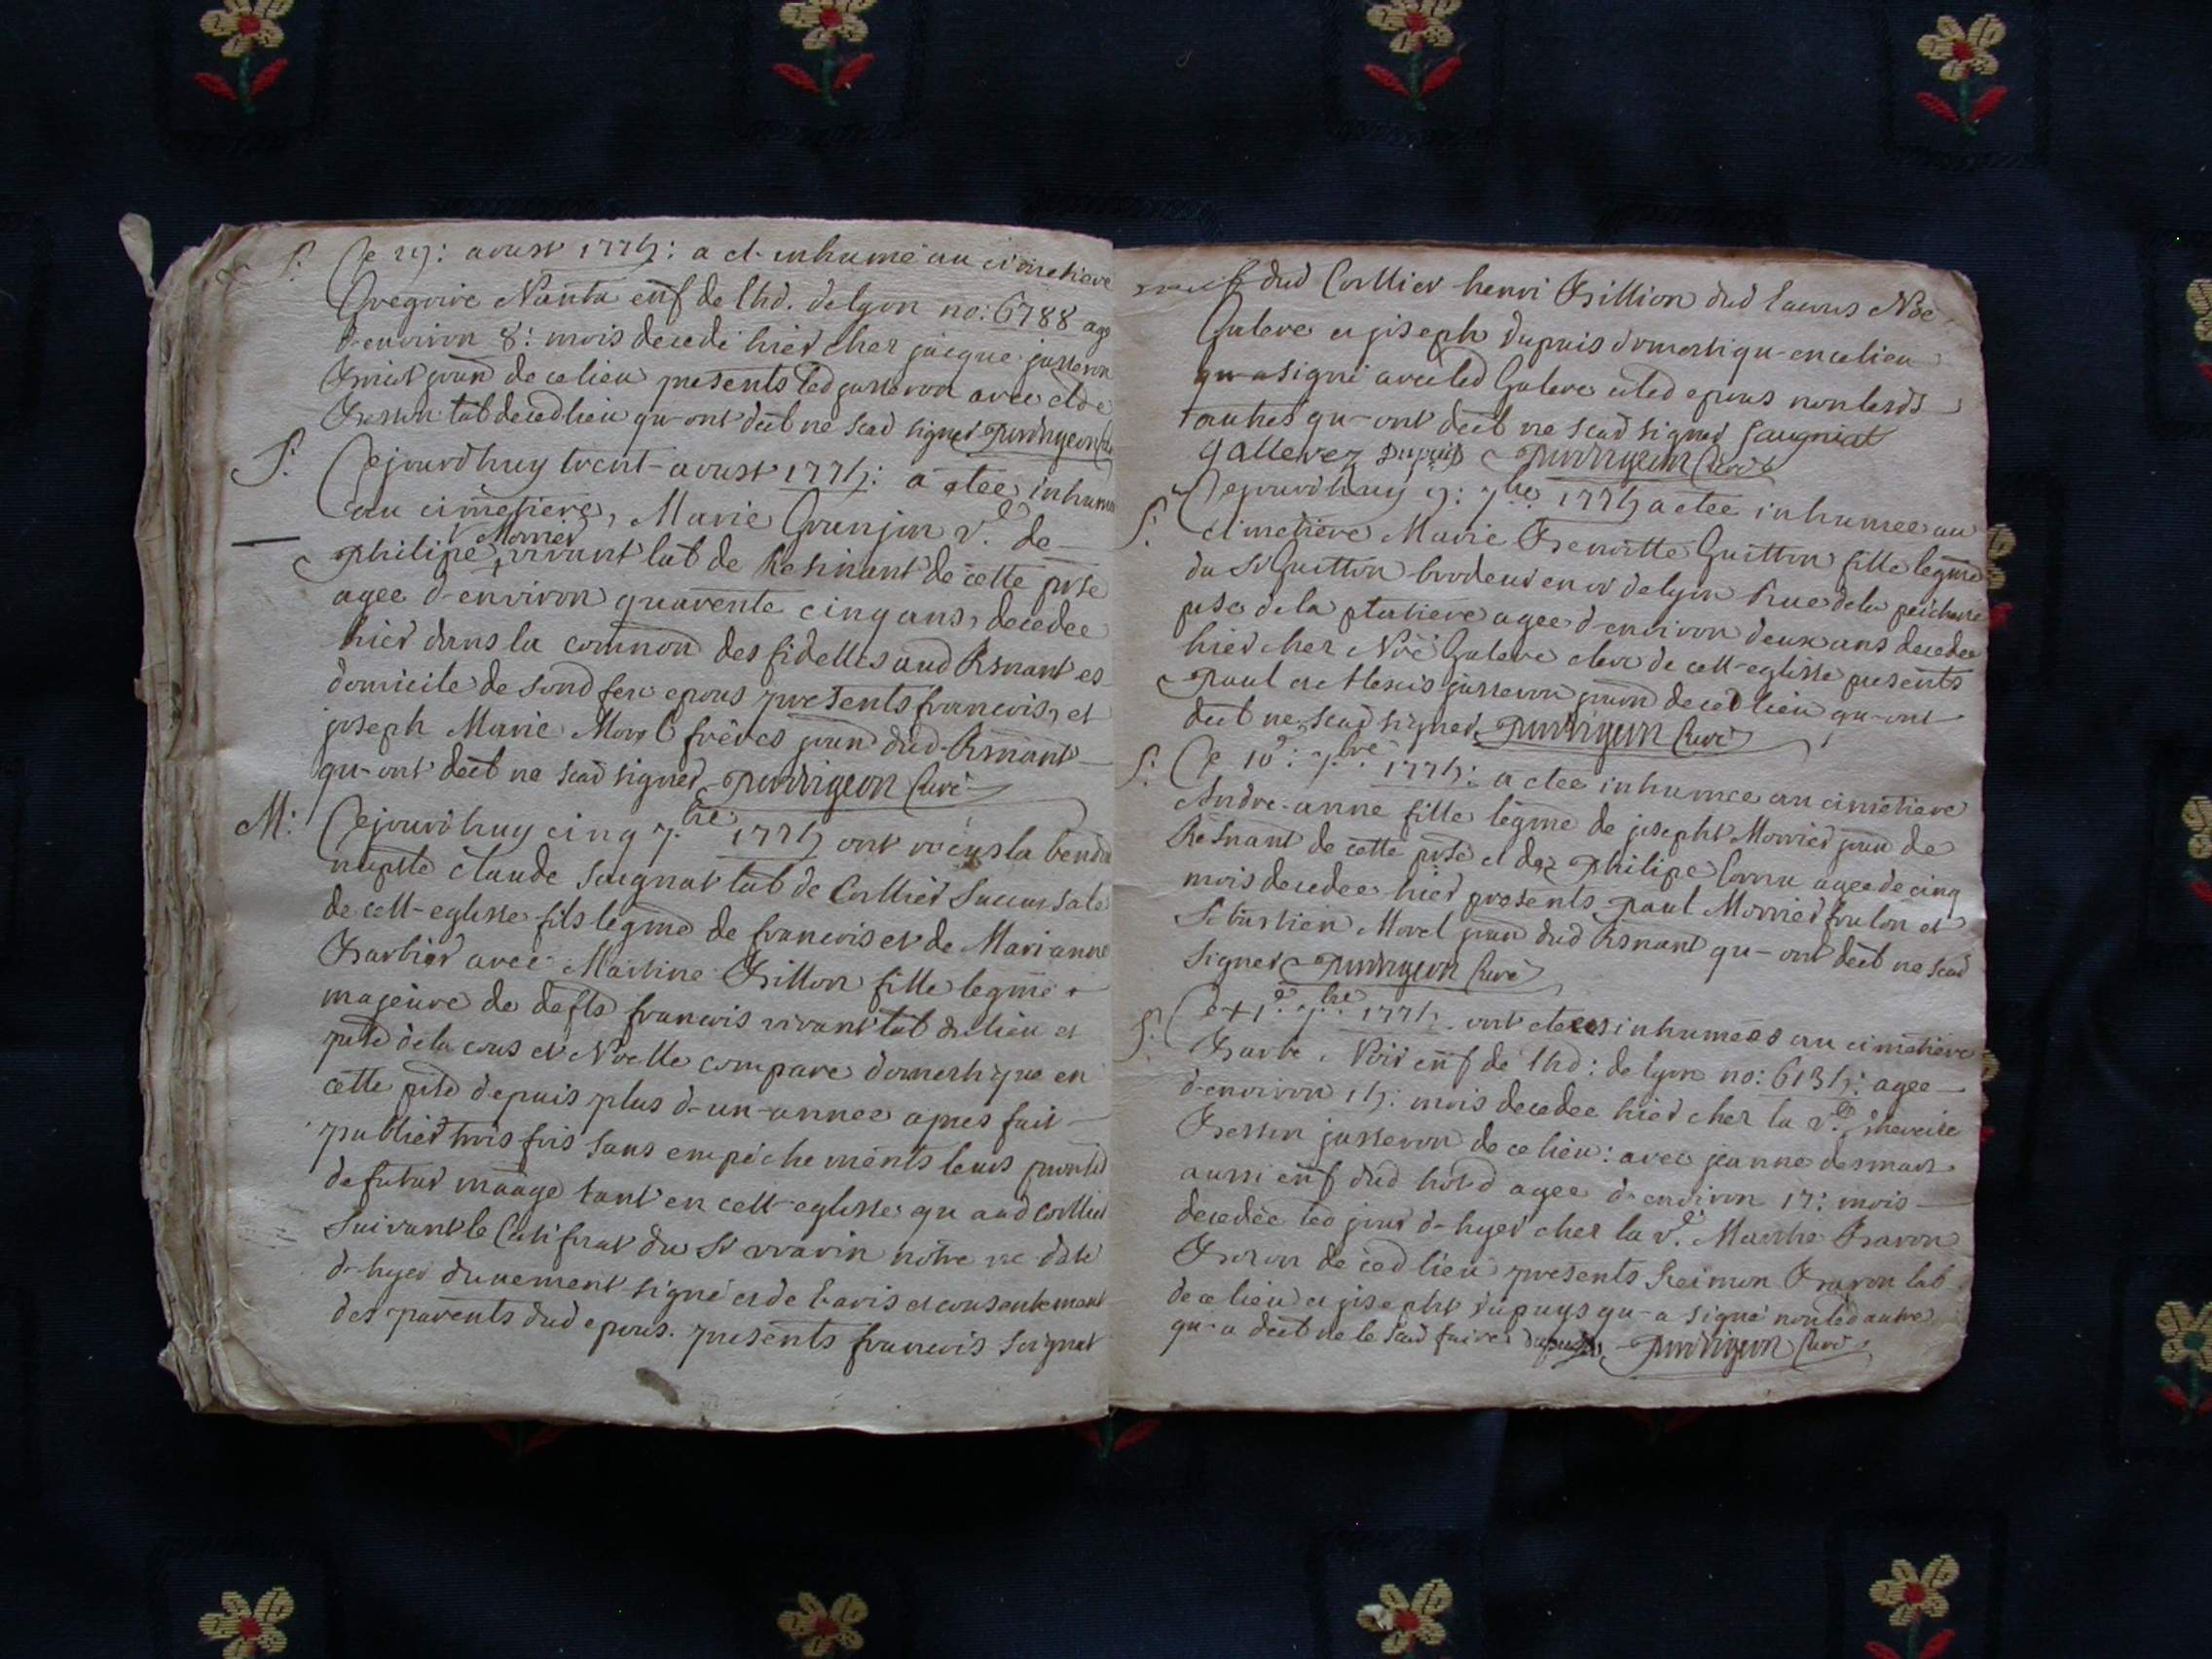 S. Ce 29: aoust 1774: a et inhumé au cimetiere
Gregoire Nanta enf de lhd. de lyon no: 6788 age
d-environ 8: mois decedé hier cher jacque jusseron
de ce lieu presents led jusseron avec
de ced lieu qu-ont deet ne scad signer
S. Cejourdhuy trent-aoust 1774: a etee inhume
au cimetiere, Marie Granjon v.e de
Morrier
philipe, vivant lab de Resinant de cette prse
agee d-environ quarente cinq ans, decedee
hier dans la comnon des fidelles aud Rsnant es
domicile de sond feu epous presents francois, et
joseph Marie Morel frères jnrn dud Rsnant
qu-ont deet ne scad signer curé
M: Cejourdhuy cinq 7.bre 1774 ont recus la bend
nuptle claude Saugnat lab de Collier Succursale
de cett-eglisse fils legme de francois et de Marianne
Barbier avec Martine Billon fille legme
majeure de defts francois vivant lab du lieu et
de la cous et Noelle compare domestique en
cette depuis plus d-un-annee apres fait
publier trois fois sans empechements leurs
de futur maage tant en cett-eglisse qu aud Collier
Suivant le Catifirat du Sr vvarin notre date
d-hyer duuement signé et de l-avis et consentement
des parents dud epous. presents francois Saignat
dud Collier henri Billion dud Noe
Galere et joseph dupuis domestiqu-en ce lieu
qu-a signé avec led Galere et led epous non lesds
autres qu-ont deet ne scad signer Saugniat
gallerez Dupuis curé
S. Cejourdhuy 9: 7bre 1774 a etee inhumee au
cimetiere Marie Benoitte Guitton fille legme
du Sr Guitton brodeur en or de lyon Rue de la
de la platiere agee d-environ deux ans decedee
hier cher Noë Galere clerc de cett-eglisse presents
Paul et Alexis jusseron de ced lieu qu-ont
deet ne scad signer curé
S. Ce 10e: 7.bre 1774: a etee inhumee au cimetiere
Andre-anne fille legme de joseph Morrier de
Resnant de cette prse et de philipe agee de cinq
mois decedee hier presents paul Morrier et
Sebastien Morel dud Rsnant qu-ont deet ne scad
signer curé
S. Ce 11e 7bre 1774 ont etees inhumees au cimetiere
Barbe Noir enf de lhd: de lyon no: 6134: agee
d-environ 14: mois decedee hier cher la v.e
Bessin jusseron de ce lieu: avec jeanne
aussi enf dud hotd agee d-environ 17: mois
decedée led jour d-hyer cher la v.e Marthe Baron
de ced lieu presents Reimon Baron lab
de ce lieu et joseph dupuys qu-a signé non led autre
qu-a deet ne le scad faire dupuis curé